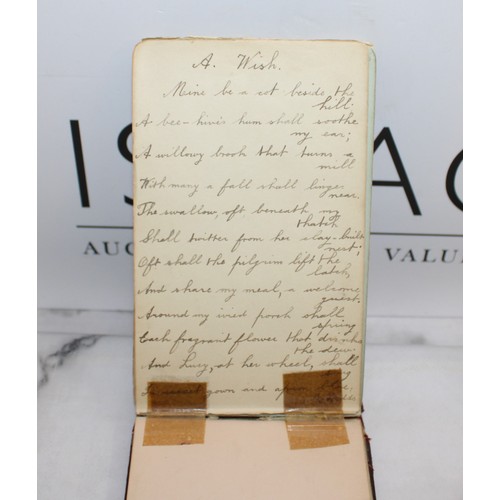 A. Wish.
Mine be a cot beside the
hill:
A bee-hive's hum shall soothe
my ear;
A willowy brook that turns a
mill
With many a fall shall linger
near.
The swallow, oft beneath my
thatch
Shall twitter from her clay-built
nest;
Oft shall the pilgrim lift the
latch,
And share my meal, a welcome
guest.
Around my ivied porch shall
spring
Each fragrant flower that drinks
the dew:
And Lucy, at her wheel, shall
gown and apron
IS
AC
AUC
VALU